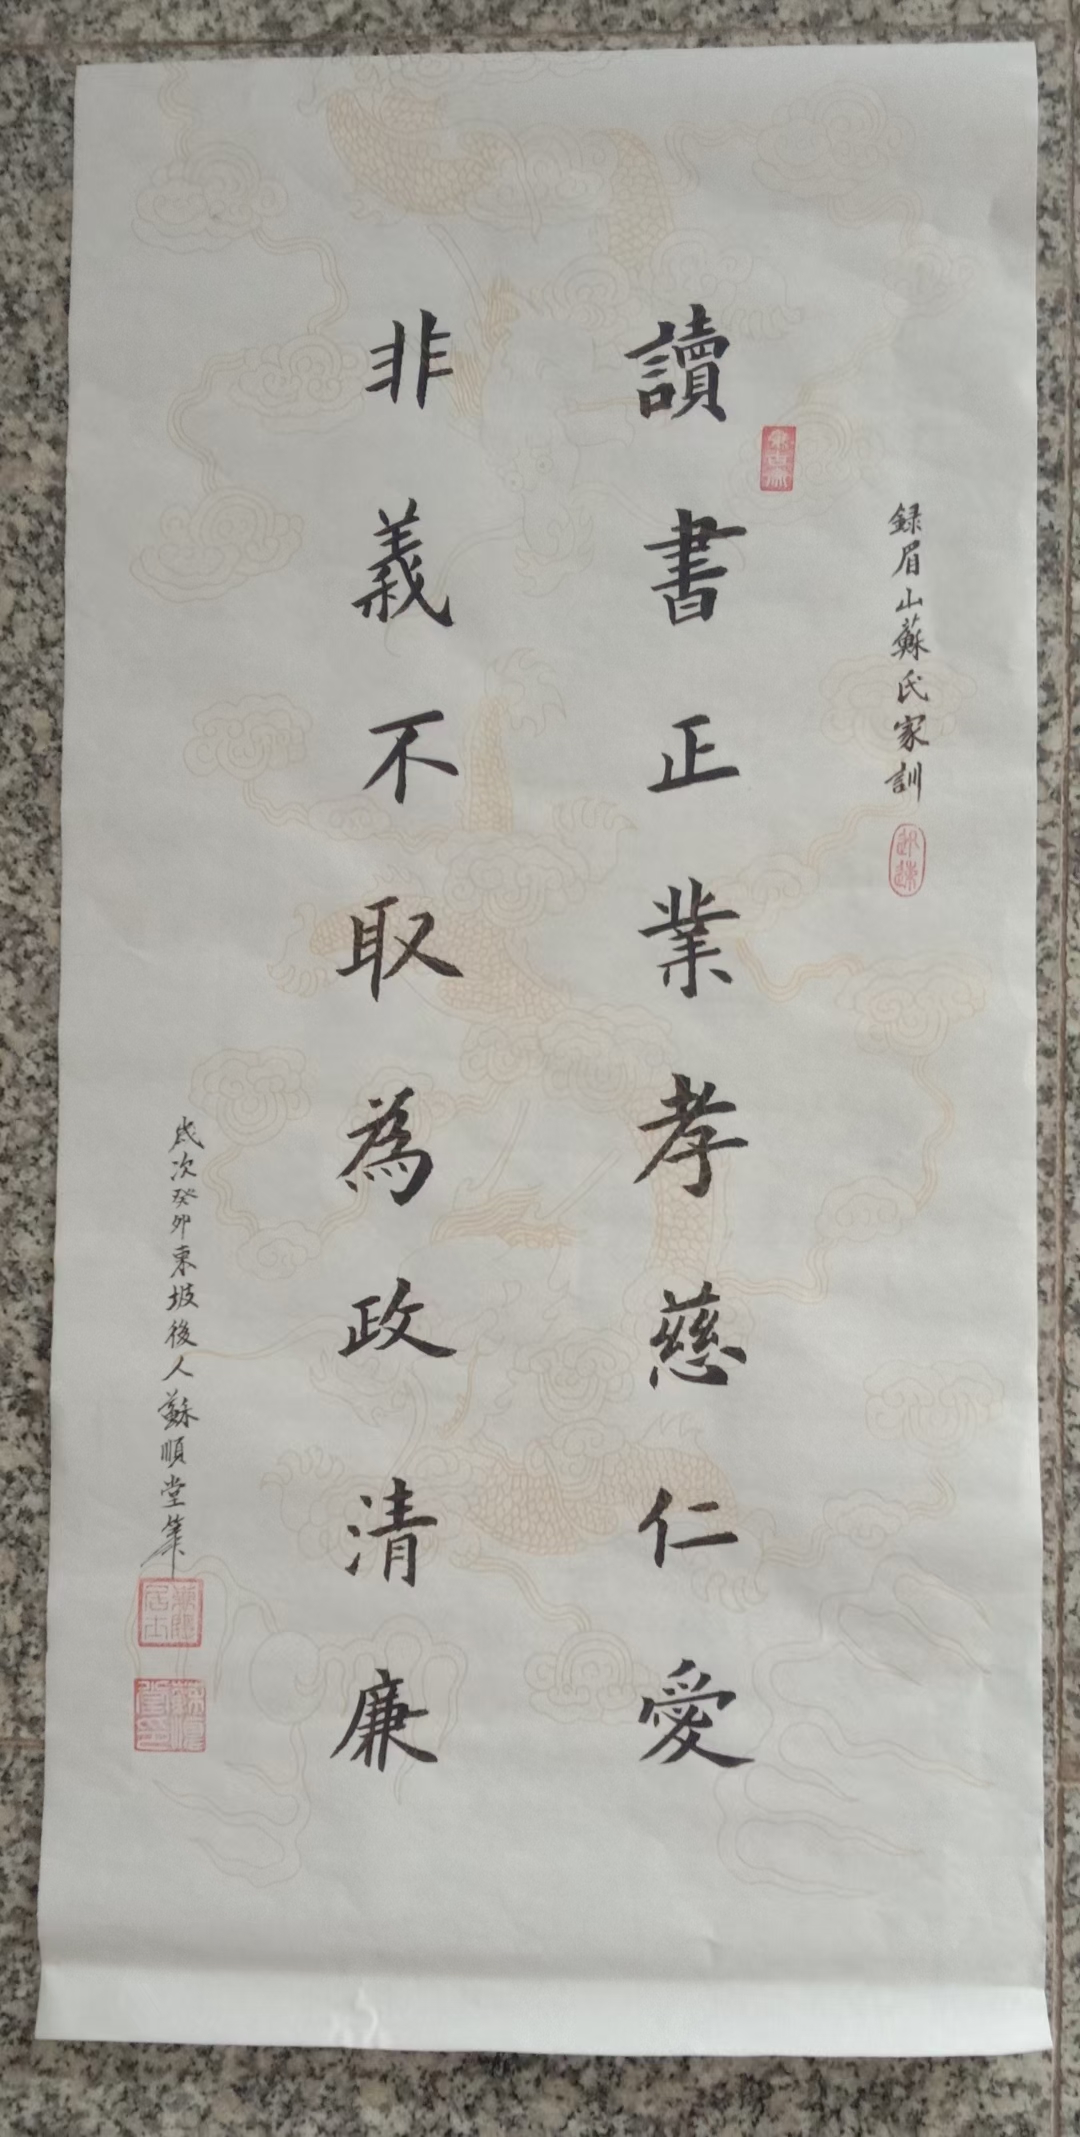 録眉山蘇氏家訓
讀書正業孝慈仁愛
非義不取為政清廉
歲次癸卯東坡後人蘇順堂筆